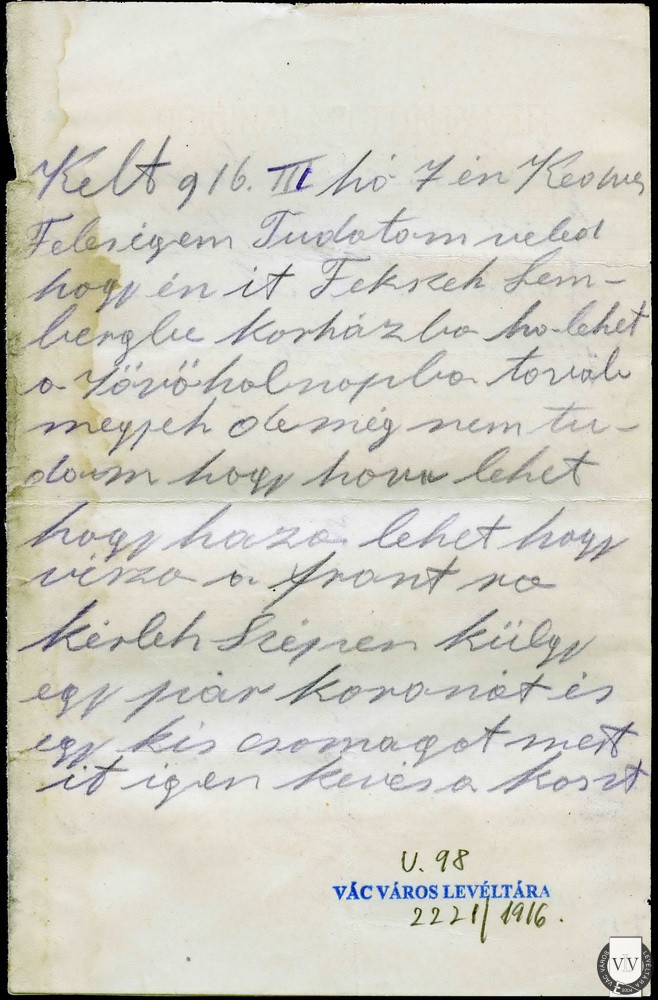 Kelt 916. III hó 7 én Kedves
Feleségem Tudotom veled
hogy én it Fekszek Lem-
bergbe korházba ha lehet
a Jövőholnapba továb
megyek de még nem tu-
dom hogy hova lehet
hogy haza lehet hogy
visza a front ra
kérlek Szépen külgy
egy pár koronát és
egy kis csomagot mert
it igen kevés a koszt
U. 98
VÁC VÁROS LEVÉLTÁRA
2221/1916.
VÁC VÁROS LEVÉLTÁRA